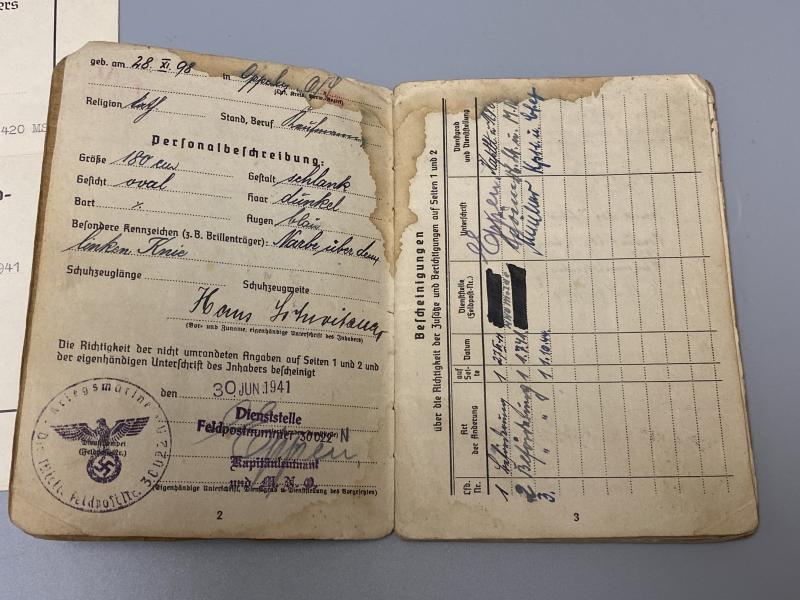 ers
420 MS
941
geb. am 28. XI. 98 in
Religion kath. Stand, Beruf Kaufmann
Personalbeschreibung:
Größe 180 cm Gestalt schlank
Gesicht oval Haar dunkel
Bart x. Augen blau
Besondere Kennzeichen (z. B. Brillenträger): Narbe über dem
linken Knie
Schuhzeuglänge Schuhzeugweite
Hans
(Vor- und Zuname, eigenhändige Unterschrift des Inhabers)
Die Richtigkeit der nicht umrandeten Angaben auf Seiten 1 und 2 und
der eigenhändigen Unterschrift des Inhabers bescheinigt
den 30. JUN. 1941
Dienststelle
Feldpostnummer 30022 N
Kapitänleutnant
und M.N.O.
(Eigenhändige Unterschrift, Dienstgrad u. Dienststellung des Vorgesetzten)
Kriegsmarine
Dienststelle Feldpostnr. 30022
Dienststempel
(Feldpostnr.)
2
Bescheinigungen
über die Richtigkeit der Zusätze und Berichtigungen auf Seiten 1 und 2
Lfd. Nr.
Art der Änderung
auf Seite
Datum
Dienststelle (Feldpost-Nr.)
Unterschrift
Dienstgrad und Dienststellung
1 Beförderung 1
2 Beförderung 1
3. " " 1 1.10.44.
3